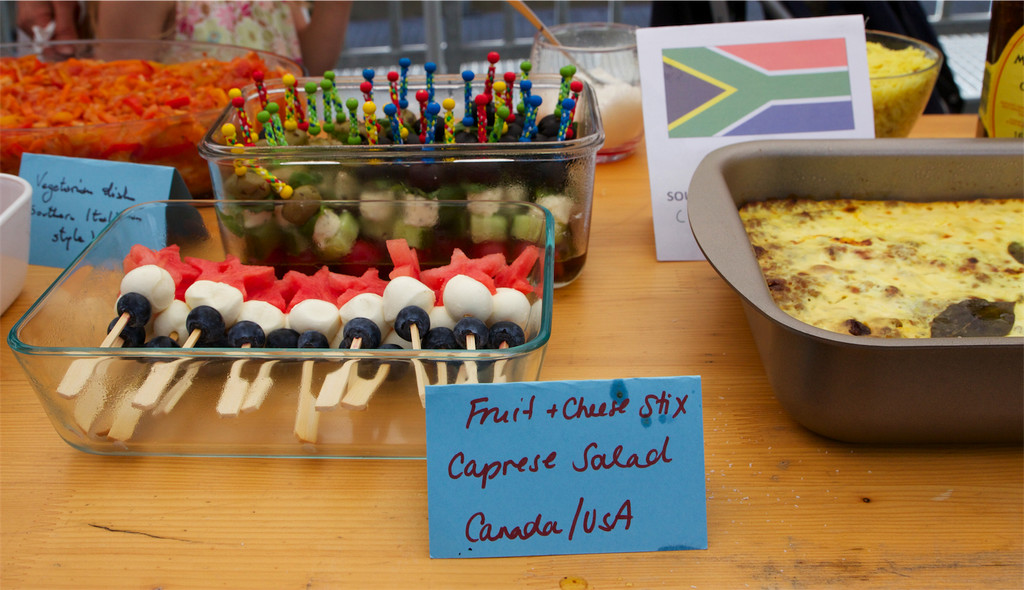 Vegetarian dish
Southern Italian
style!
SOU
C
Fruit + Cheese Stix
Caprese Salad
Canada/USA
M